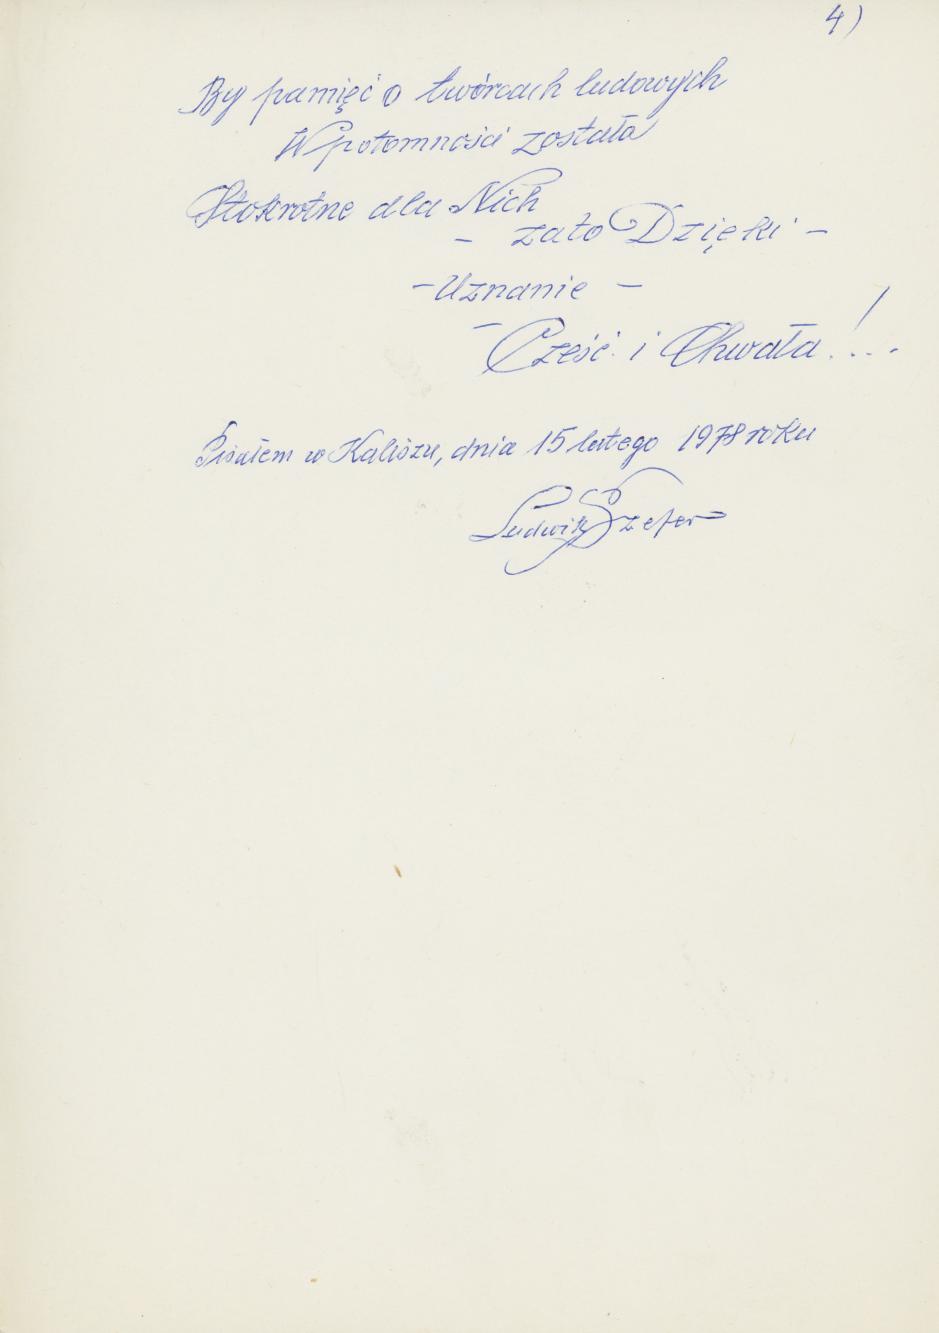 4)
By pamięć o twórcach ludowych
W potomności została
Stokrotne dla Nich
- zato Dzięki -
- Uznanie -
- Cześć i Chwała!...
Pisałem w Kaliszu, dnia 15 lutego 1978 roku
Ludwik Szefer